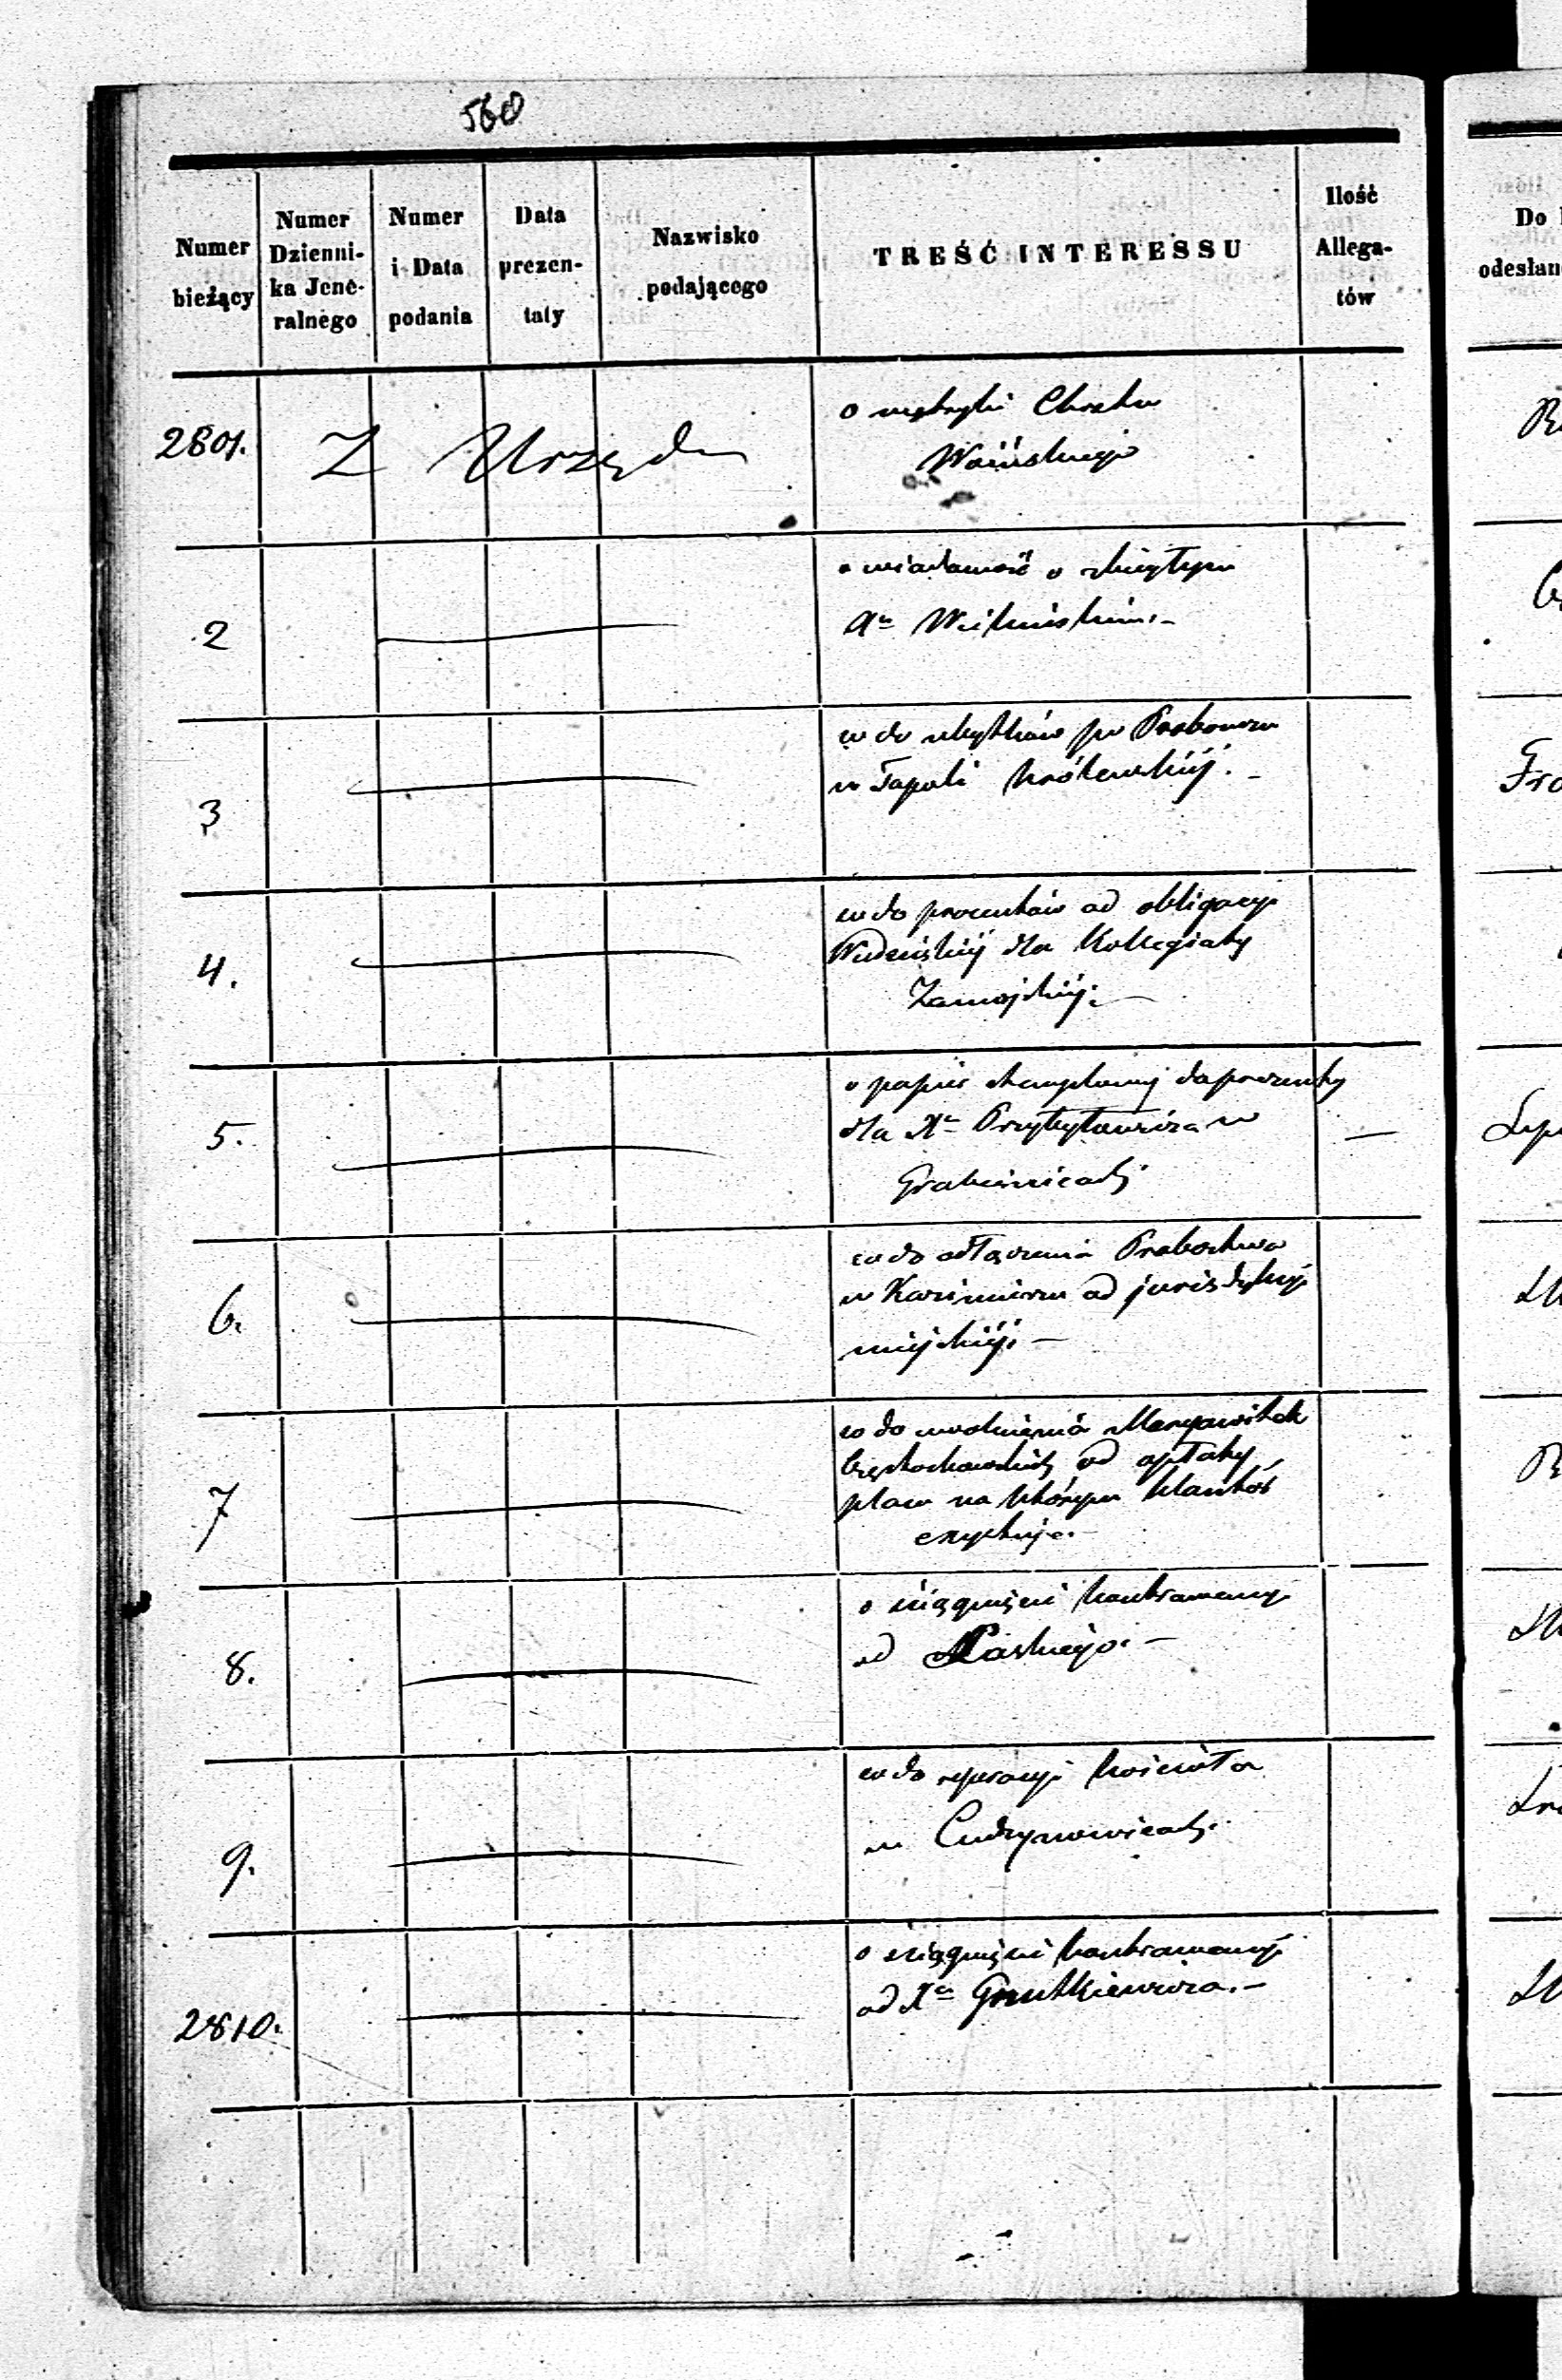 560
Numer bieżący
Numer Dzienni- ka Jene- ralnego
Numer i Data podania
Data prezen- taty
Nazwisko podającego
TREŚĆ INTERESSU
Ilość Allega- tów
Do
odesłan
2801.
Z Urzędu
o metryki Chrztu
2
o wiadomość o zbiegłym
Xu
3
co do użytków po Proboszczu
w Królewskiéj. -
4.
co do procentów od obligacyi
Wiedeńskiéj dla Kollegiaty
Zamojskiéj. -
5.
o papier stemplowy do prezenty
dla Xa Przybyłowicza w
Grabienicach
6.
co do odłączenia Probostwa
w Kazimierzu od jurisdykcyi
miejskiéj. -
7
co do uwolnienia Maryawitek
Częstochowskich od opłaty
placu na którym klasztor
exystuje. -
8.
o ściągnięcie kontrawency
od Paskiego. -
9.
co do reperacyi kościoła
w Cudzynowicach.
2810.
o ściągnięcie kontrawencyi
od Xa Grutkiewicza. -